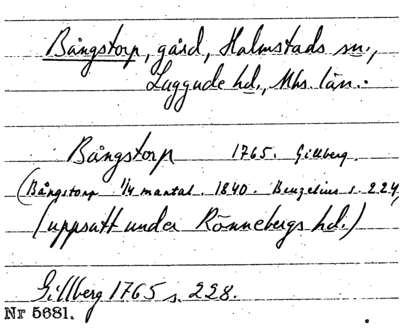 Bångstorp, gård, Halmstads sn.,
Luggude hd., Mhs. län.
Bångstorp 1765. Gillberg.
(Bångstorp 1/4 mantal. 1840. Beuzelius s. 224,
(uppsatt under Rönnebergs hd.)
Gillberg 1765 s. 228.
Nr 5681.